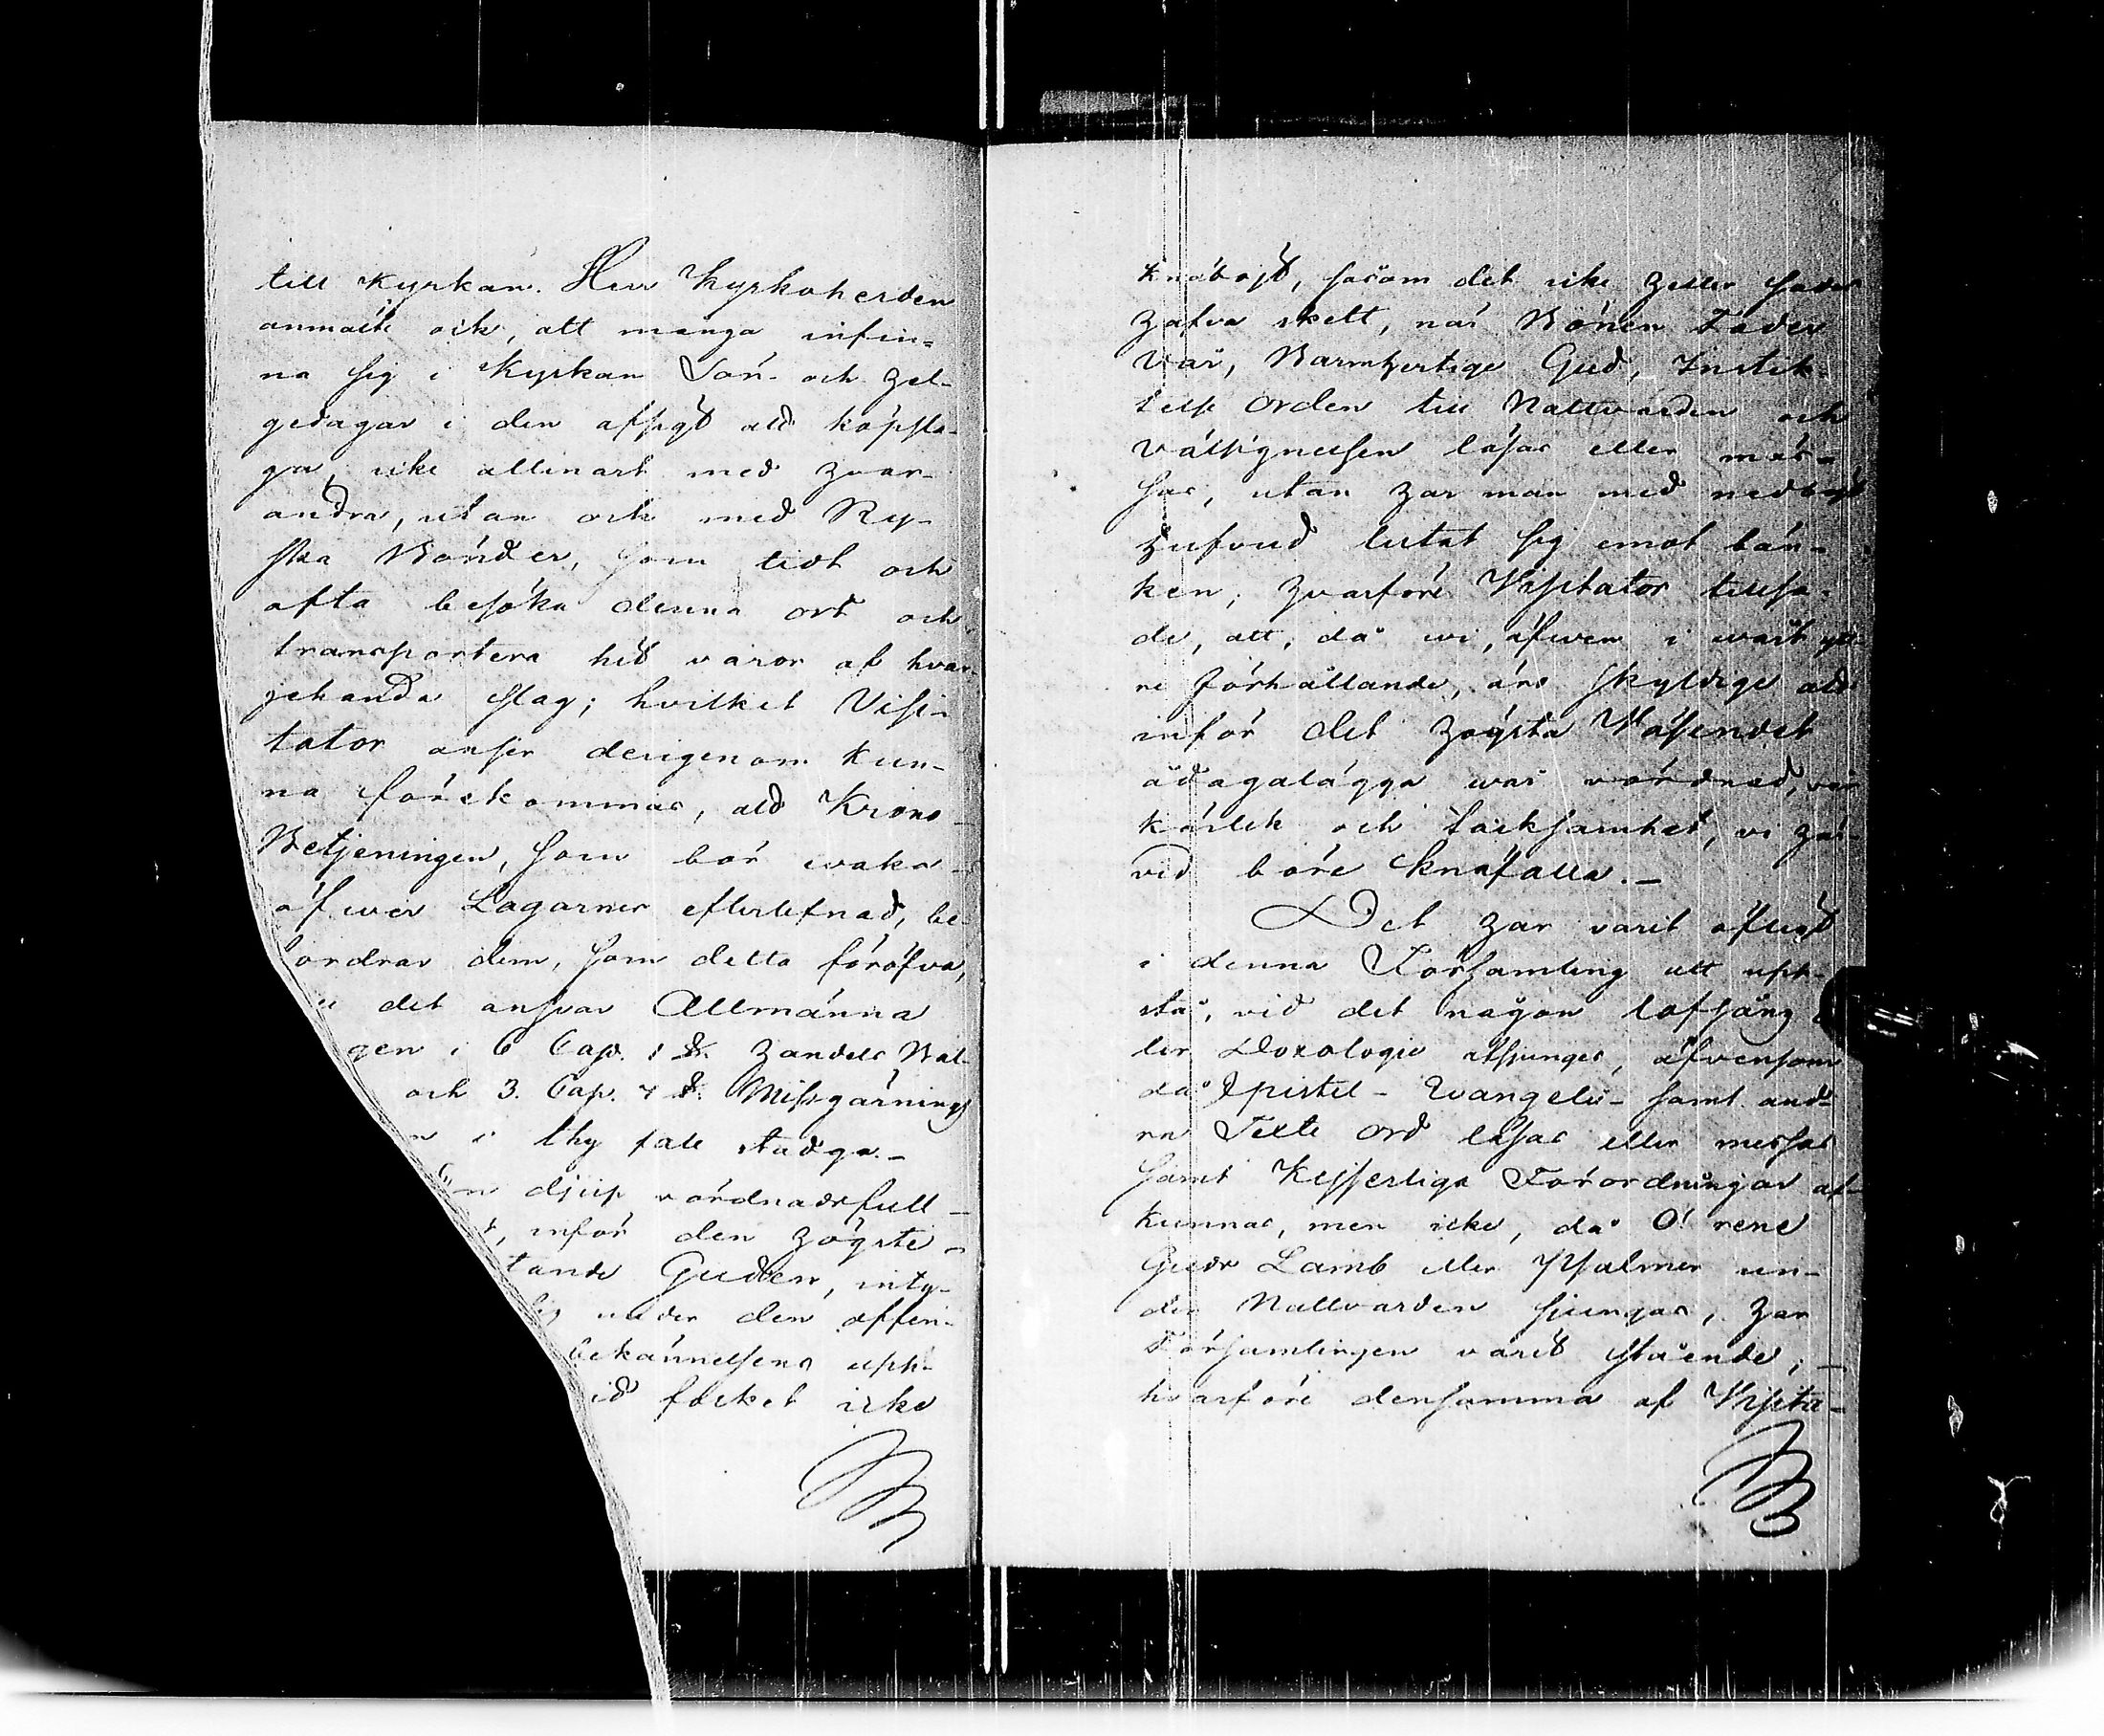 till Kyrkan. Herr Kyrkoherden
anmälte ock, att många infin-
na sig i Kyrkan Sön- och Hel-
gedagar i den afsigt att köpsla-
ga, icke allenast med hvar-
andra, utan ock med Ry-
ska Bönder, som tidt och
ofta besöka denna ort och
transportera hit varor af hvar-
jehanda slag; hvilket Visi-
tator anser derigenom kun-
na förekommas, att Krono-
Betjeningen, som bör waka
öfwer Lagarnes efterlefnad, be-
fordrar dem, som detta föröfva,
det ansvar Allmänna
gen i 6 Cap. 1 §. Handels Bal-
och 3. Cap. 7 §. Missgärnings
n i thy fall stadga.-
En djup vördnadsfull-
t, inför den Högste-
tande Guden, inty-
sig under den offen-
bekännelsens uph-
id folket icke
knäböjt, såsom det icke heller sades
hafva skett, när Bönen Fader
vår, Barmhertige Gud, Instik-
telse Orden till Nattvarden och
Välsignelsen läsas eller mäs-
sas, utan har man med nedböjt
hufvud lutat sig emot bän-
ken; hvarföre Visitator tillsa-
de, att, då wi, äfwen i wårt yt-
re förhållande, äro skyldige att
inför det Högsta Wäsendet
ådagalägga wår vördnad, vår
kärlek och tacksamhet, vi här-
vid böre knäfalla.-
Det har varit öfligt
i denna Församling att uph-
stå, vid det någon lofsång
ler Doxologie afsjunges, äfvensom
då Epistel- Evangelii- samt and-
ra Texte ord läsas eller messas
samt Kejserliga Förordningar af-
kunnas, men icke, då O! rene
Guds Lamb eller Psalmer un-
der Nattvarden sjungas, har
Församlingen varit stående; -
hvarföre densamma af Visita-